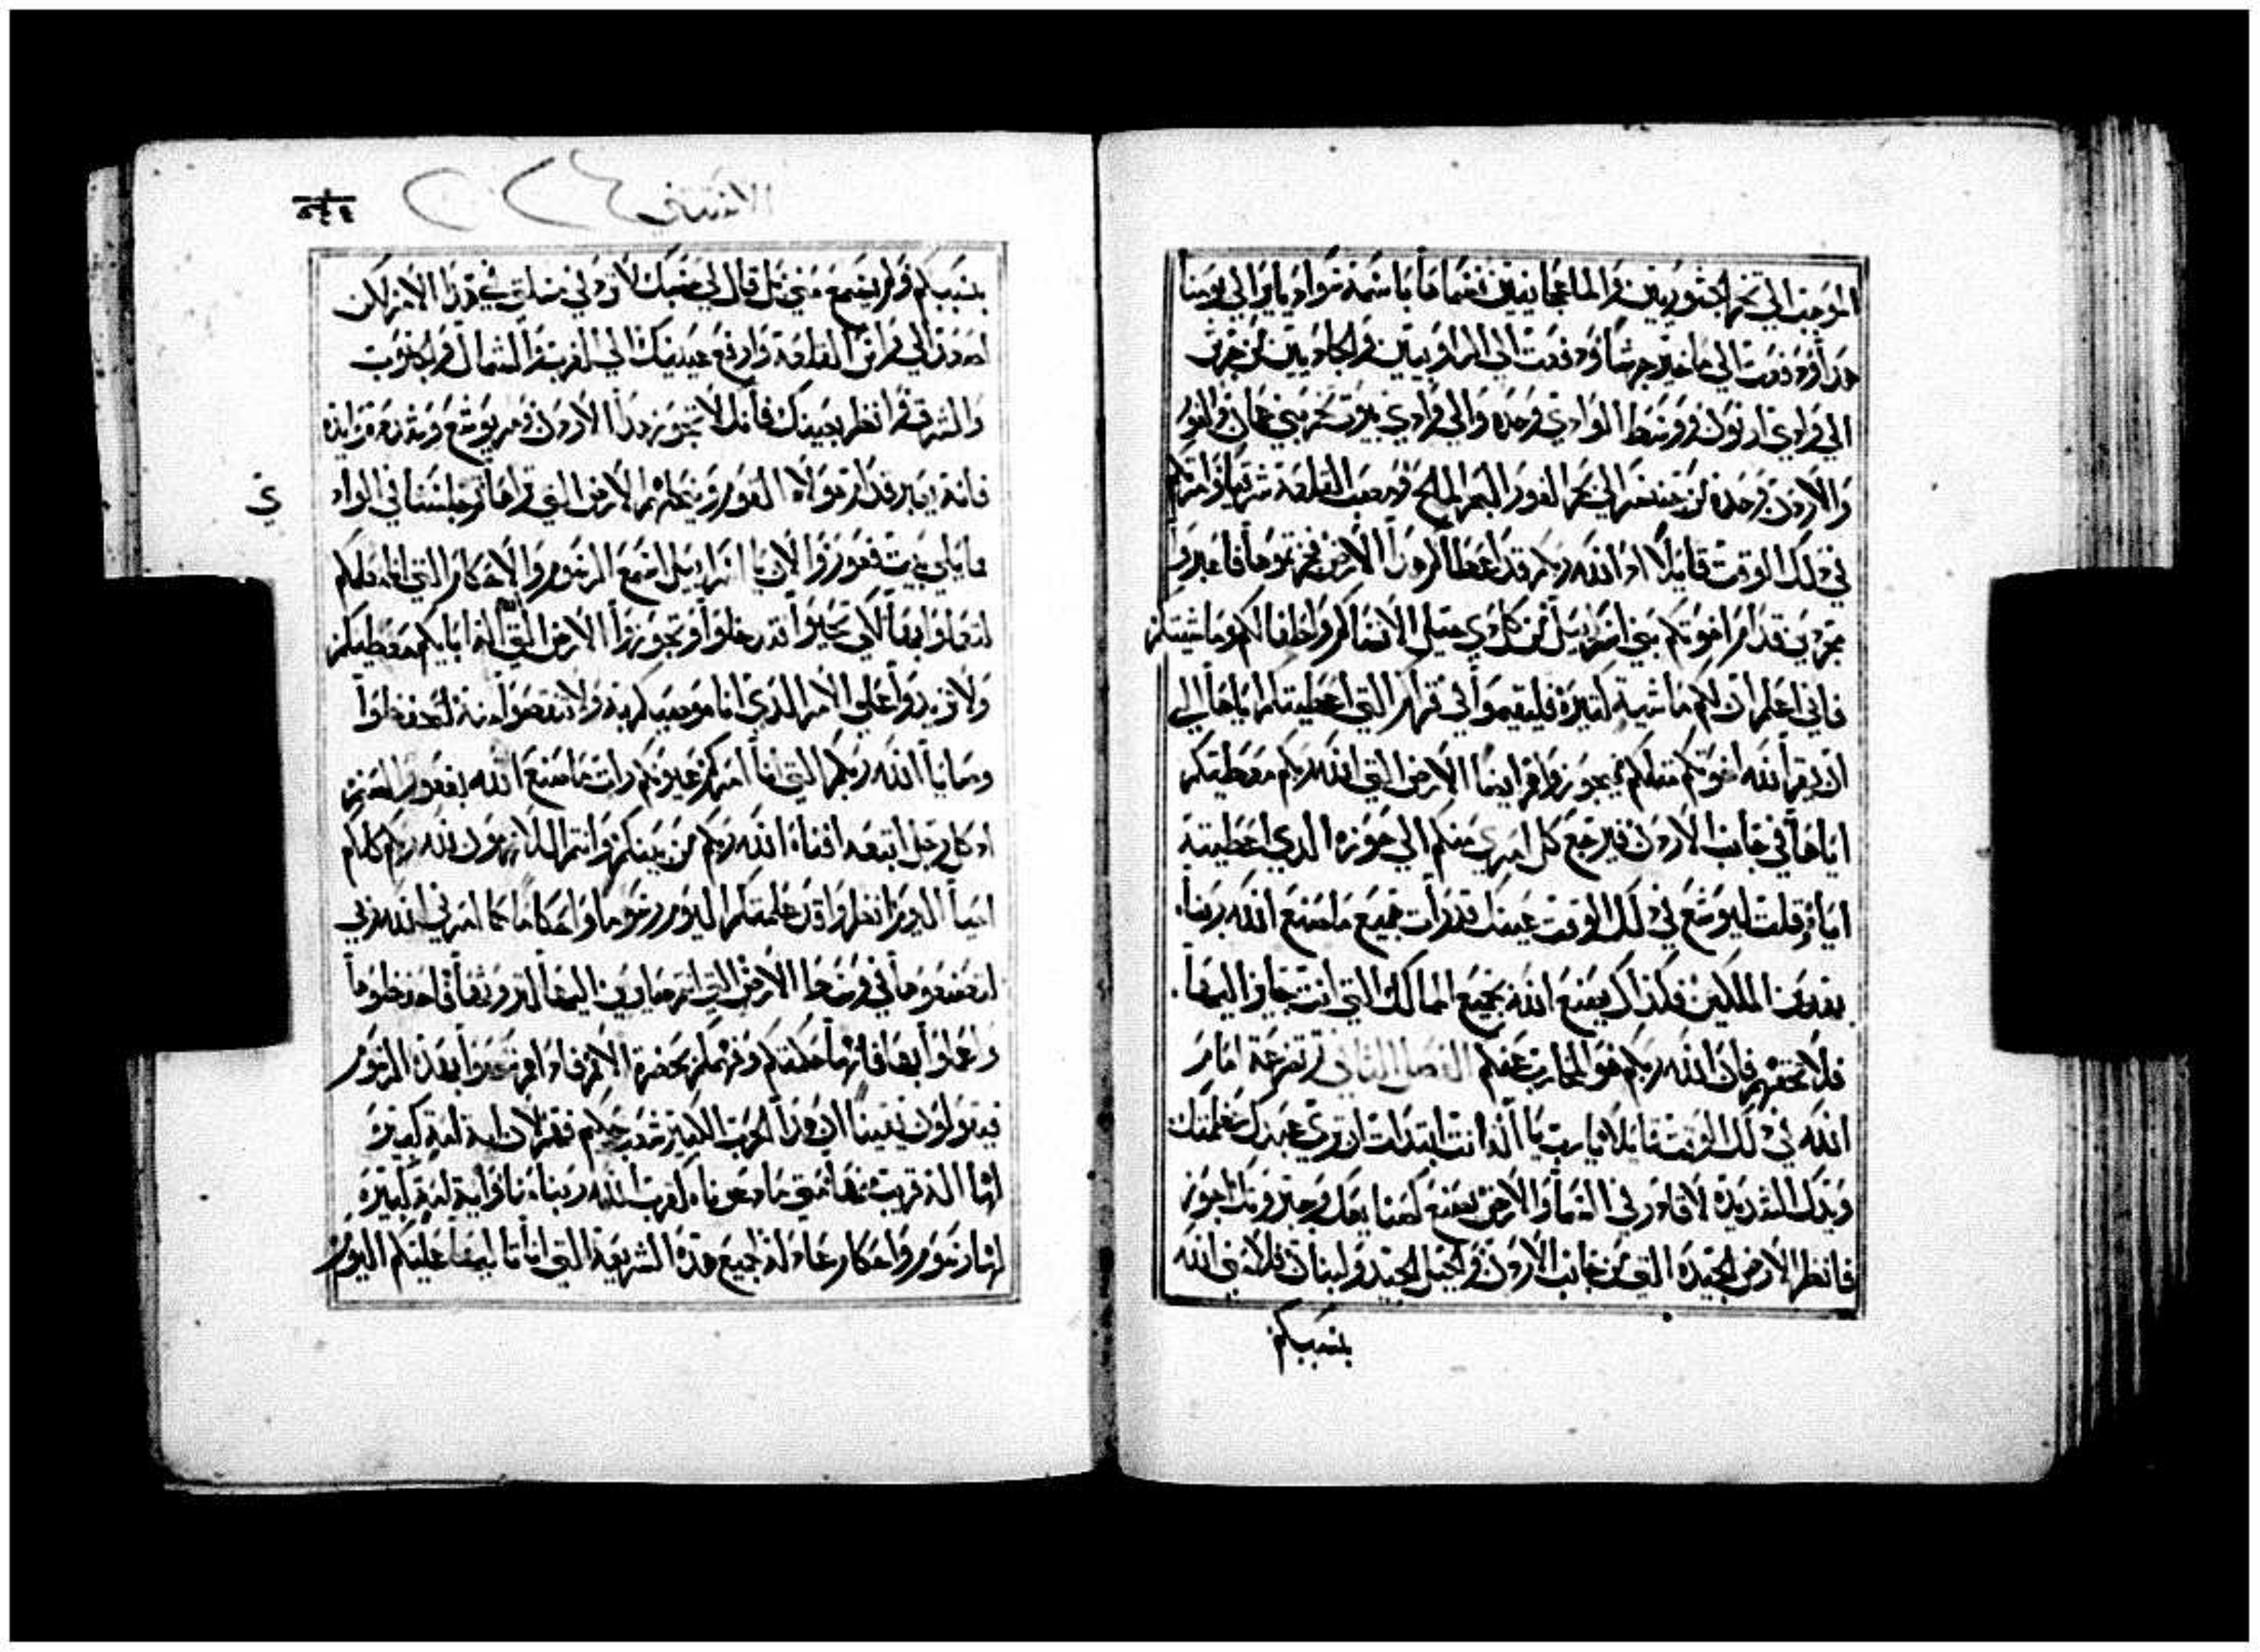 الي وادي ارنون ووسط الوادي وحده والي وادي يبوت تخم بني عمان والغور
والاردن وحده من جنسر الي بحر الغور البحر المالح ومصب القلعة شرقيا وامرتكم
في ذلك الوقت قايلا ان الله ربكم قد اعطاكم هذا الارض تحوزوها فاعبروا
مجردين قدام اخوتكم بني اسراييل من كل ذي حيل الا نساكم واطفالكم وماشيتكم
فاني اعلم ان لكم ماشية كثيرة فليقيموا في قراكم التي اعطيتكم اياها الي
ان يقر الله اخوتكم مثلكم فيحوزوا هم ايضا الارض التي الله ربكم معطيكم
اياها في جانب الاردن فيرجع كل امري منكم الي حوزه الذي اعطيته
اياه وقلت ليوشع في ذلك الوقت عينك قد رات جميع ما صنع الله ربنا
بهذين الملكين فكذاك يصنع الله بجميع الممالك التي انت جايز اليها
فلا تخفهم فان الله ربكم هو المحارب عنكم الفصل الثاني تضرعة امام
الله في ذلك الوقت قايلا يارب يا الله انت ابتدات ان تري عبدك عظمتك
ويدك الشديدة لا قادر في السما والارض يصنع كصنايعك وجبروتك اجوز
فانظر الارض الجيدة التي من جانب الاردن والجبل الجيد ولبنان فلامني الله
بسببكم
الاثنين
بسببكم ولم يسمع مني بل قال لي حسبك لا تزدني مسلتي في هذا الامر لكن
اصعد الي راس القلعة وارفع عينيك الي الغرب والشمال والجنوب
والشرق وانظر بعينك فانك لا تجوز هذا الاردن ومر يوشع وشدده وايده
فانه يعبر قدام هولاء القوم وينحلهم الارض التي تراها وجلسنا في الواد
ي
مايلي بيت فغور والان يا اسراييل اسمع الرسوم والاحكام التي انا معلمكم
لتعملوا بها لكي تحيوا وتدخلوا وتحوزوا الارض التي الله اله ابايكم معطيكم
ولا تزيدوا علي الامر الذي انا موصيكم به ولا تنقصوا منه لتحفظوا
وصايا الله ربكم التي انا امركم عيونكم رات ما صنع الله بفغور الصنم
ان كل رجل اتبعه افناه الله ربكم من بينكم وانتم اللازمون لله ربكم كلكم
احيا اليوم انظروا قد علمتكم اليوم رسوما واحكاما كما امرني الله ربي
لتصنعوها في وسط الارض التي انتم صايرون اليها لترثوها فاحفظوها
واعملوا بها فانها حكمتكم وفهمكم بحضرة الامم فاذا هم سمعوا بهذه الرسوم
فيقولون يقينا ان هذا الحزب الكبير شعب حكيم فهم لان اية امة كبيرة
لها اله قريب منها متي ما دعوناه كقرب الله ربنا منا واية امة كبيرة
لها رسوم واحكام عادلة جميع هذه الشريعة التي انا تاليها عليكم اليوم